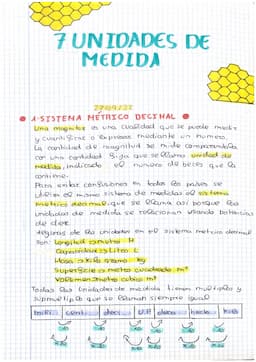 7 UNIDADES DE
MEDIDA
27/04/22
1-SISTEMA METRICO DECIMAL
Una magnitud es una cualidad que se puede medir
y cuantificar o expresar mediante un numero.
La cantidad de magnitud se mide comparandola
con una cantidad fija que se llama unidad de
medida, indicado el numero de veces que la
contiene.
Para evitar confusiones en todos los paises se
utiliza el mismo sistema de medidas el sistema
metrico decimal que se llama asi porque las
unidades de medida se relacionan usando potencias
de diez.
Algunas de las unidades en el sistema metrico decimal
son: Longitud → metro M
Capacidad → Litro L
Masa → kilogramo kg
Superficie → metro cuadrado m²
Volumen → metro cubico m³
Todas las unidades de medida tienen multiplos y
submultiplos que se llaman siempre igual
mili centi deci deca hecto kilo